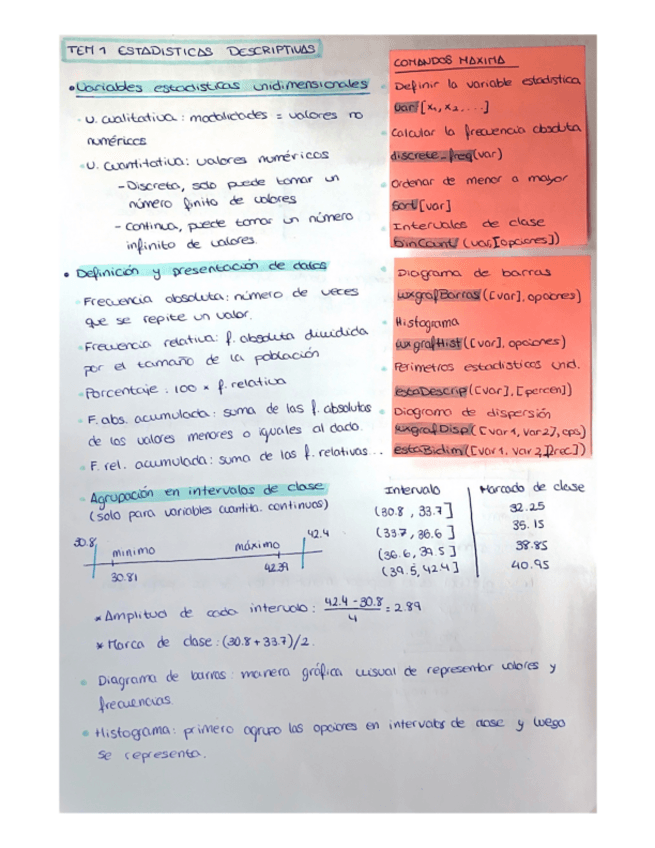 TEM 1 ESTADISTICAS DESCRIPTIVAS
• Variables estadisticas unidimensionales
· V. cualitativa : modalidades = valores no
numéricos
· V. Cuantitativa : valores numéricos
- Discreta, solo puede tomar un
número finito de valores
- Continua, puede tomar un número
infinito de valores.
• Definición y presentación de datos
· Frecuencia absoluta : número de veces
que se repite un valor.
· Frecuencia relativa : f. absoluta dividida
por el tamaño de la población
· Porcentaje . 100 × f. relativa
· F. abs. acumulada : suma de las f. absolutas
de los valores menores o iguales al dado.
· F. rel. acumulada : suma de las f. relativas...
COMANDOS MAXIMA
· Definir la variable estadistica
var [x₁, x₂ ....]
· Calcular la frecuencia absoluta
discrete_freq(var)
· Ordenar de menor a mayor
Sort[var]
· Intervalos de clase
binCount (var,[opciones])
· Diagrama de barras
wxgrafBarras([var], opciones)
· Histograma
wxgrafHist([var], opciones)
· Perimetros estadisticos unid.
estaDescrip([var],[percen])
· Diagrama de dispersión
wxgrafDisp([var1, var2], ops)
estaBidim([var1, var2],prec])
· Agrupación en intervalos de clase
(solo para variables cuantita. continuas)
30.8 minimo máximo 42.4
30.81 42.39
Intervalo Marcado de clase
(30.8 , 33.7] 32.25
(33.7 , 36.6] 35.15
(36.6, 39.5] 38.85
(39.5, 42.4] 40.95
* Amplitud de cada intervalo : 42.4 - 30.8 / 4 = 2.89
* Marca de clase : (30.8 + 33.7)/2.
• Diagrama de barras : manera gráfica visual de representar valores y
frecuencias.
• Histograma : primero agrupo las opciones en intervalos de clase y luego
se representa.